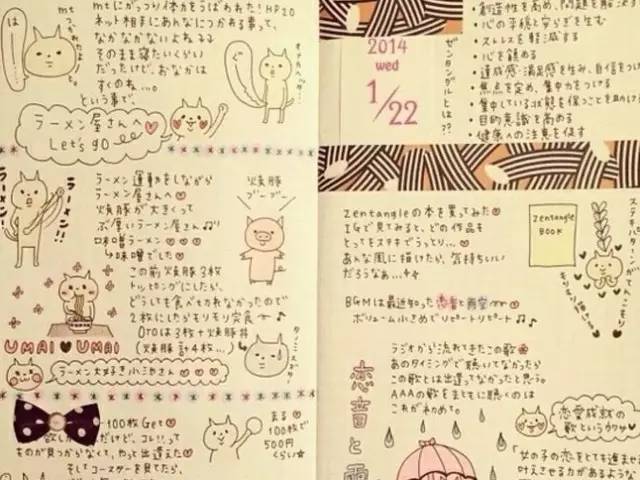 mt
つかれたよ!
は…
mtにがっつり体力をうばわれた! HP20
ネット相手にあんなにつかれる事って、
なかなかないよね 子子
そのまま寝たいくらい
だったけど、おなかは
すくのね…。
という事で、
オナカヘッター
ラーメン屋さんへ
Let's go
ラーメン!
ラーメン!!
ラーメン運動をしながら
ラーメン屋さんへ
焼豚が大きくって
ぶ厚いラーメン屋さん♫
味噌ラーメン
味噌でした
この前焼豚3枚
トッピングにしたら、
どうしても食べきれなかったので
2枚にしたらモリモリ完食
OTOは3枚+焼豚丼
(焼豚 計4枚…)
焼豚
ブーブー
UMAI UMAI
ラーメン大好き小池さん
100枚Get
欲し だけど、コレ!!って
ものが見つからなくて、やっと出逢えた
そしてコースターを見てたら、
まる
100枚で
500円
くらい
2014
wed
1/22
ゼンタングルとは??
創造性を高め、問題を解決す
・心の平穏と安らぎを生む
・ストレスを軽減する
・心を鎮める
・達成感・満足感を生み、自信をつけ
・焦点を定め、集中力をつける
・集中している状態を保つことを助け
・目的意識を高める
・健康への注意を促す
Zentangleの本を買ってみた
IGで見てみると、どの作品も
とってもステキでうっとり…
あんな風に描けたら、気持ちいい
だろうなぁ…
Zentangle
BOOK
BGMは最近知った恋音と雨空
ボリューム小さめでリピートリピート♫♪
ラジオから流れてきたこの歌
あのタイミングで聴いてなかったら
この歌とは出逢ってなかったと思う。
AAAの歌をまともに聴くのは
これが初めて。
恋音と雨
恋愛成就の
歌というウワサ
「女の子の恋をとても進ませ
叶えさせる力があるような